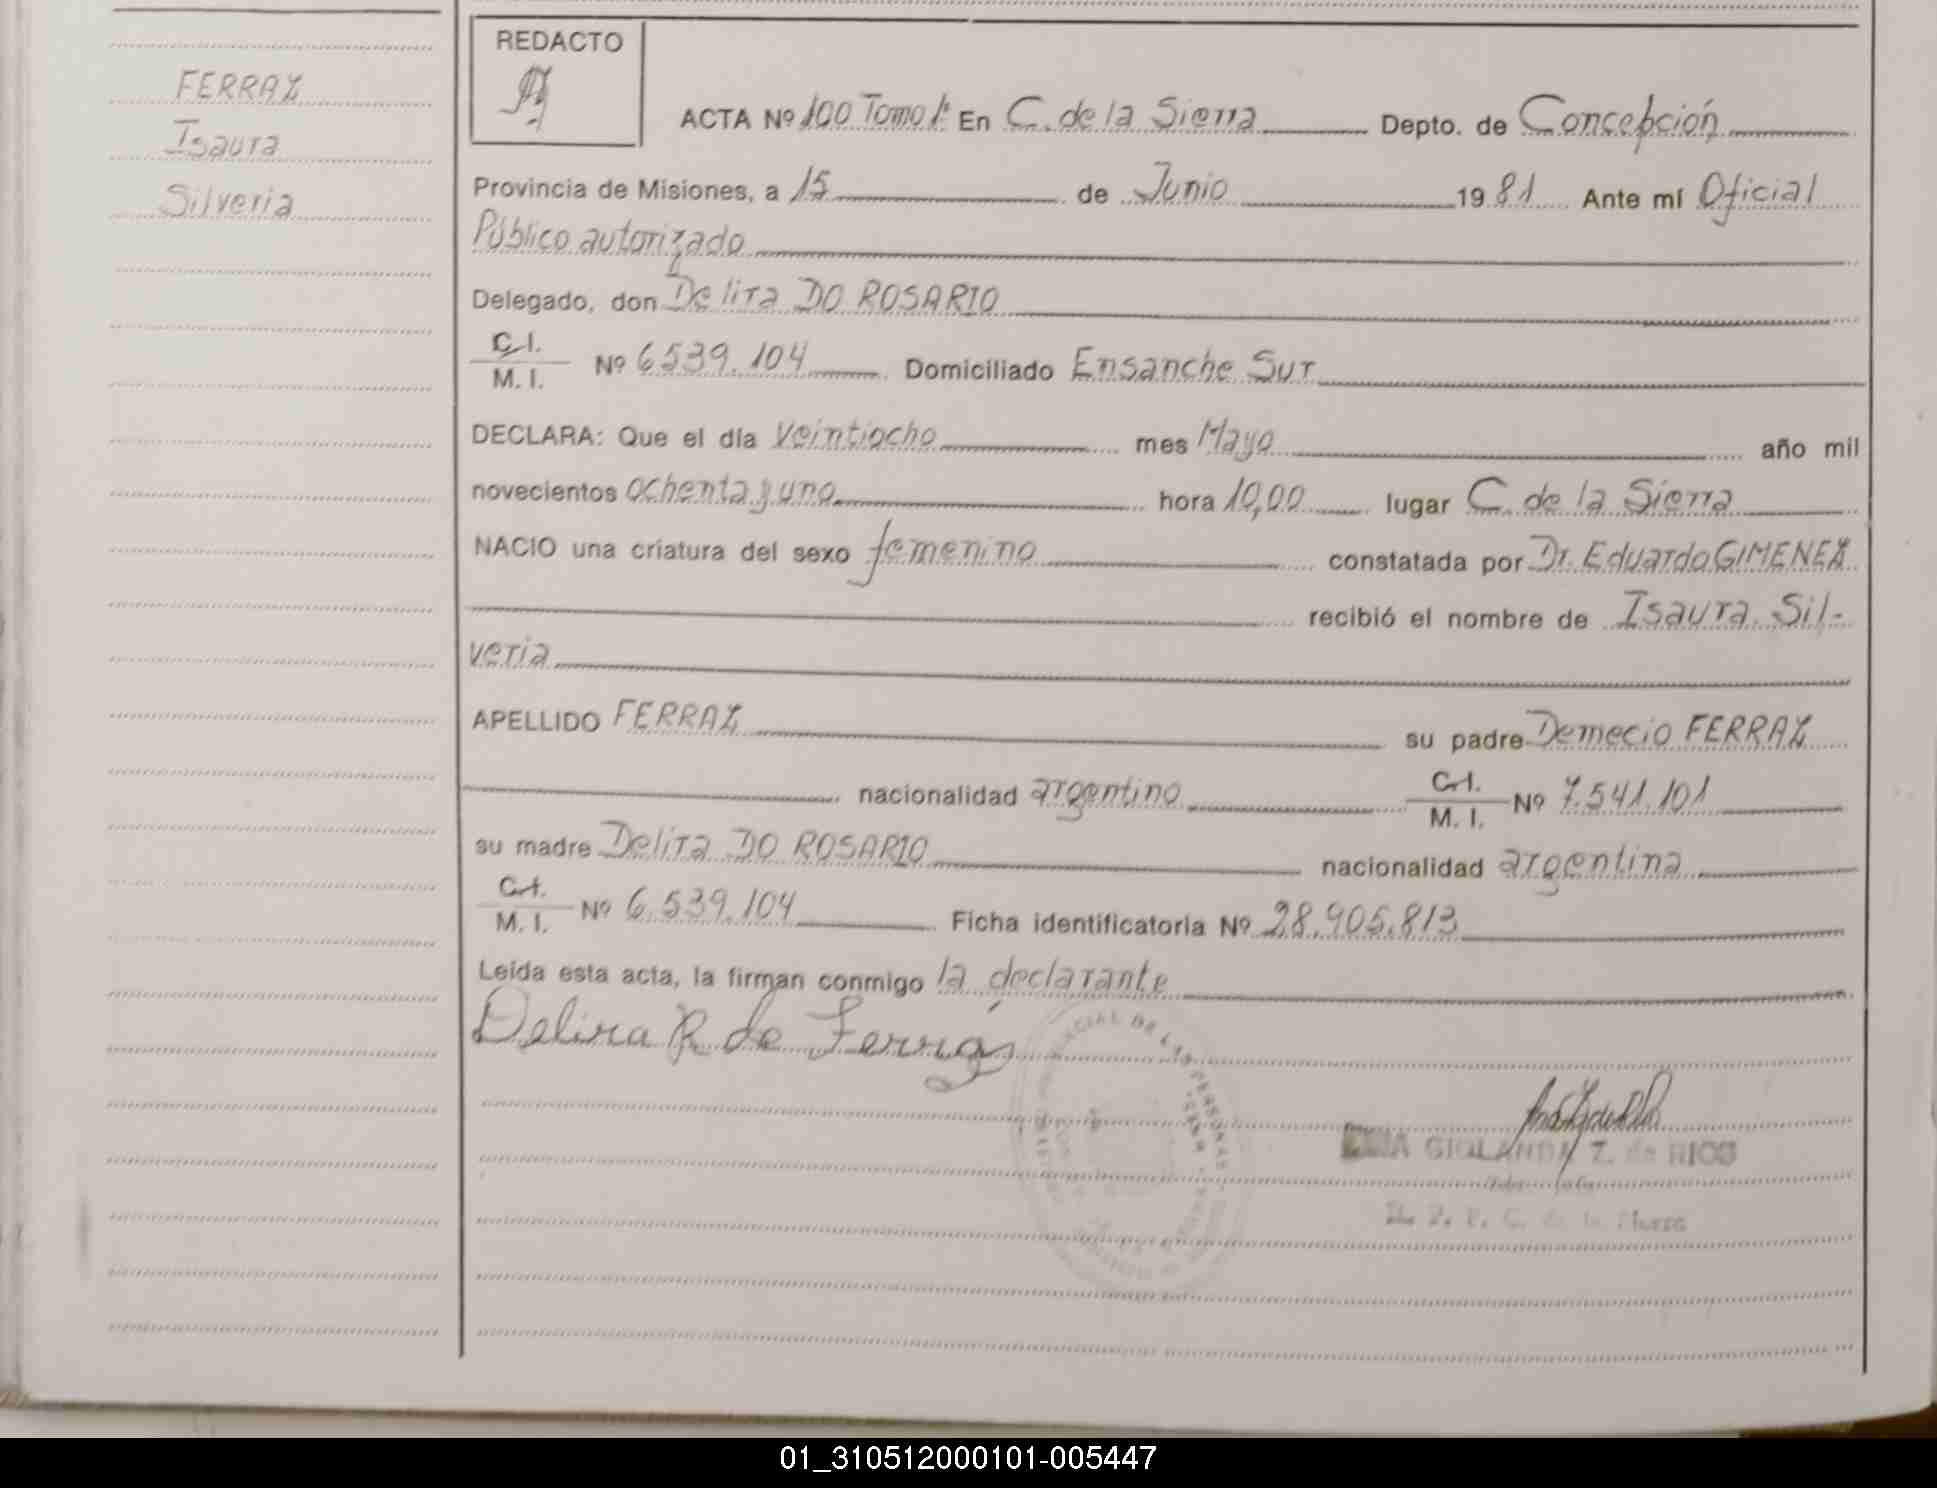 FERRAZ
Isaura
Silveria
REDACTO
ACTA Nº 100 Tomo 1º En C. de la Sierra Depto. de Concepción
Provincia de Misiones, a 15 de Junio 1981 Ante mí Oficial
Público autorizado
Delegado, don Delira DO ROSARIO
C.I. / M.I. Nº 6539.104 Domiciliado Ensanche Sur
DECLARA: Que el día veintiocho mes Mayo año mil
novecientos ochenta y uno hora 10,00 lugar C. de la Sierra
NACIO una criatura del sexo femenino constatada por Dr. Eduardo GIMENEZ
recibió el nombre de Isaura Sil-
veria
APELLIDO FERRAZ su padre Demecio FERRAZ
nacionalidad argentino C.I. / M.I. Nº 7.541.101
su madre Delira DO ROSARIO nacionalidad argentina
C.I. / M.I. Nº 6.539.104 Ficha identificatoria Nº 28.905.813
Leída esta acta, la firman conmigo la declarante
Delira R de Ferraz
GIOLANDA Z. de RICO
01_310512000101-005447